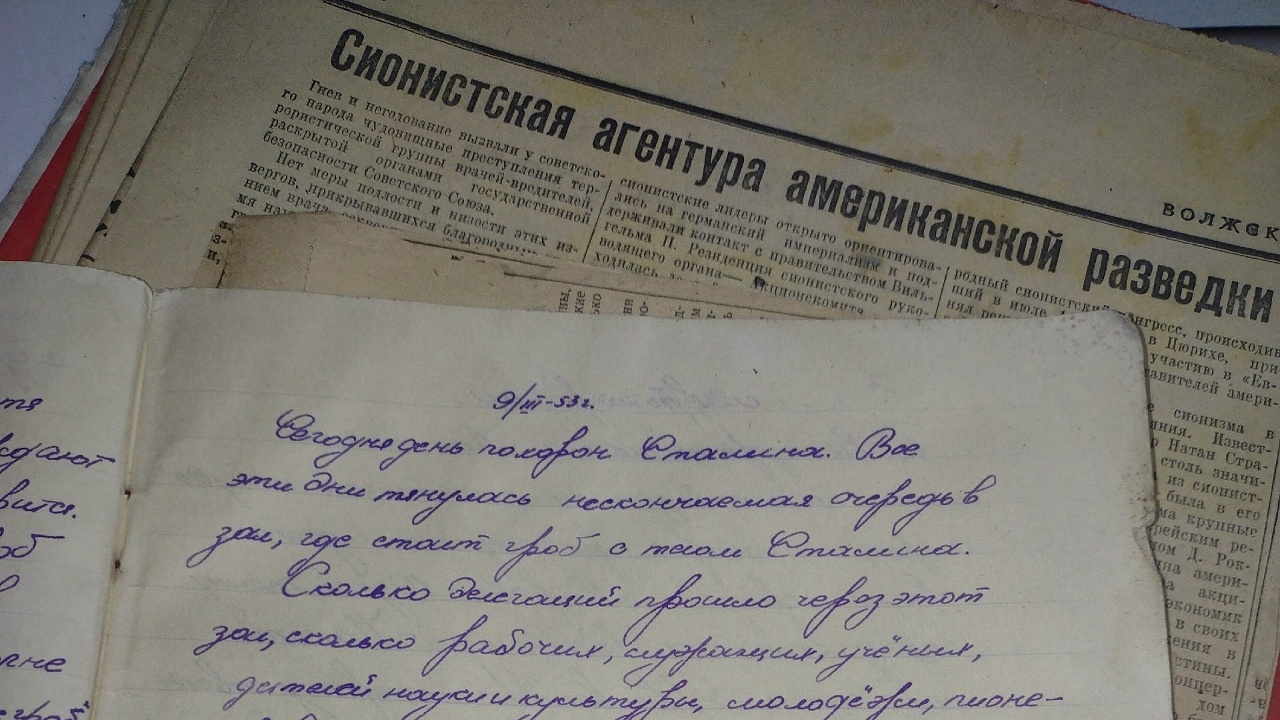 Сионистская агентура американской разведки
ВОЛЖСК
Гнев и негодование вызвали у советско-
го народа чудовищные преступления тер-
рористической группы врачей-вредителей,
раскрытой органами государственной
безопасности Советского Союза.
Нет меры подлости и низости этих из-
вергов, прикрывавшихся
нием врача
сионистские лидеры открыто ориентирова-
лись на германский империализм и под-
держивали контакт с правительством Виль-
гельма II. Резиденция сионистского руко-
водящего органа— Акционскомитета
ходилась
родный сионистский конгресс, происходив
ший в июле
в Цюрихе, при-
участию в «Ев-
тавителей амери-
сионизма в
Извест-
Натан Стра-
столь значи-
из сионист-
была в его
крупные
рейским ре-
Д. Рок-
амери-
акци-
экономик
в своих
в
стины.
онцер-
дом
9/III-53г.
Сегодня день похорон Сталина. Все
эти дни тянулась нескончаемая очередь в
зал, где стоит гроб с телом Сталина.
Сколько делегаций прошло через этот
зал, сколько рабочих, служащих, учёных,
деятелей науки и культуры, молодёжи, пионе-